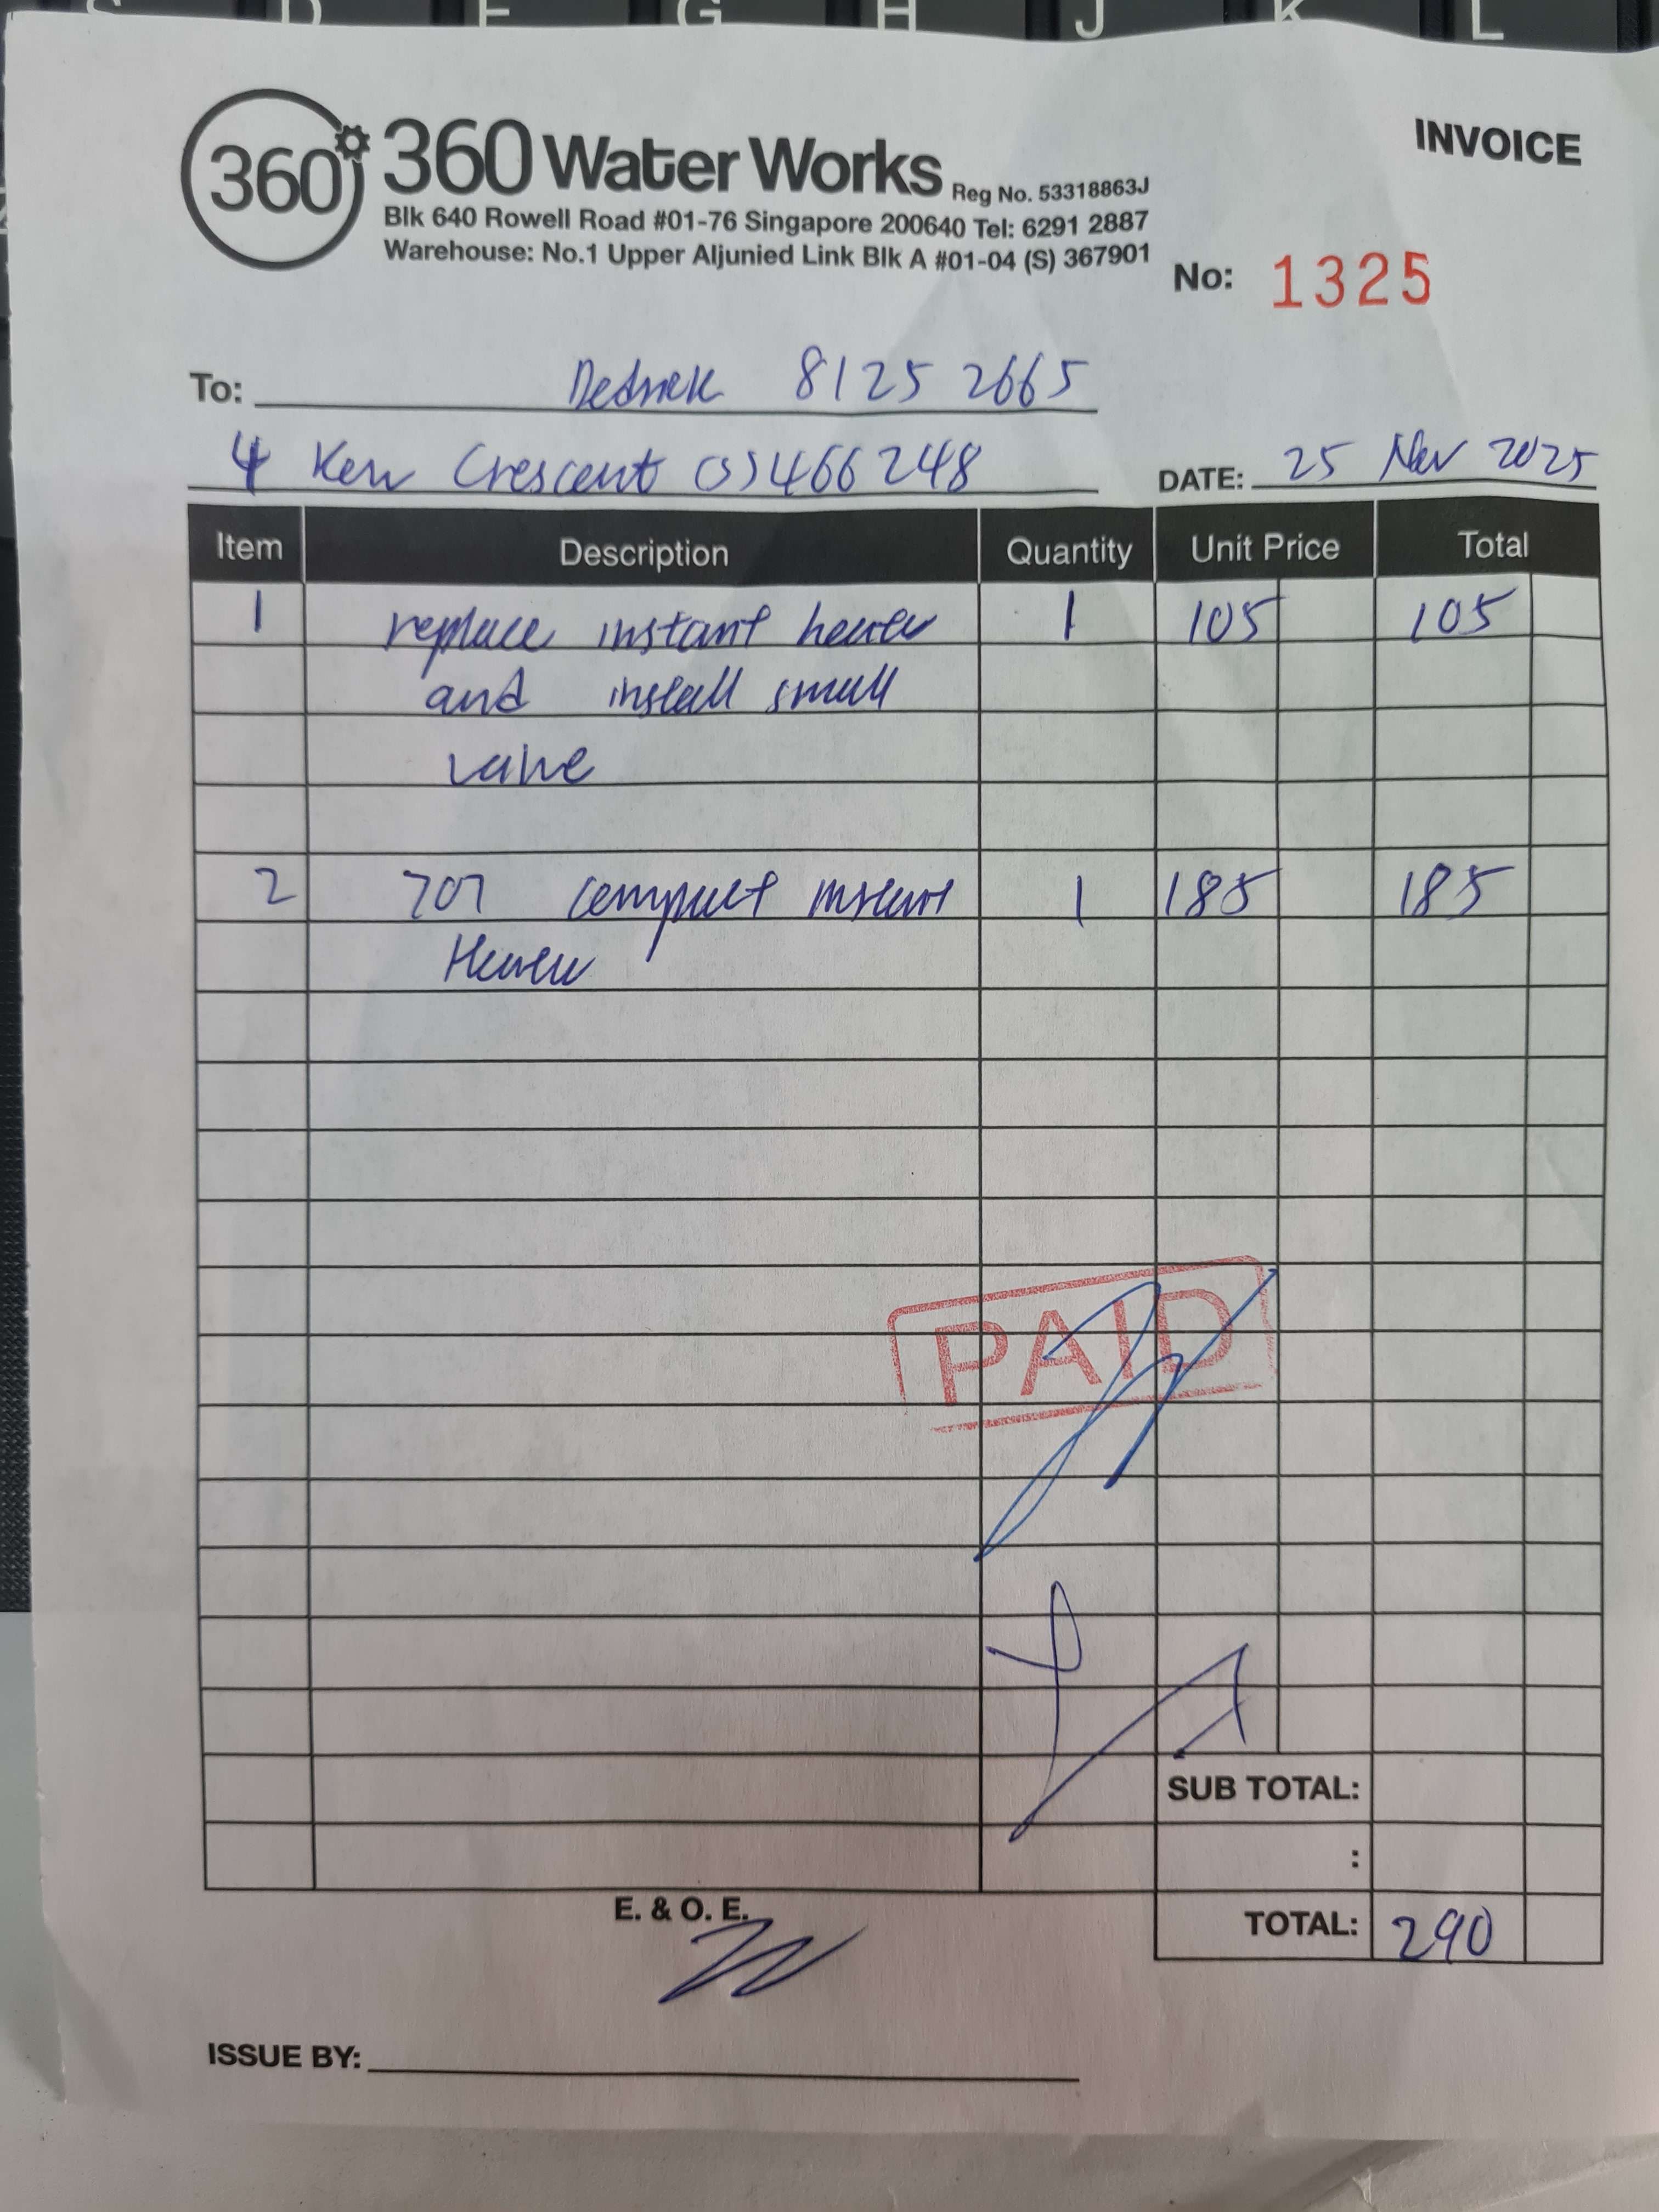 S D F G H J K L
360
360 Water Works Reg No. 53318863J
INVOICE
Blk 640 Rowell Road #01-76 Singapore 200640 Tel: 6291 2887
Warehouse: No.1 Upper Aljunied Link Blk A #01-04 (S) 367901
No: 1325
To: Dedrick 8125 2665
4 Kew Crescent (S) 466248
DATE: 25 Nov 2025
Item Description Quantity Unit Price Total
1 replace instant heater 1 105 105
and install small
valve
2 707 compact instant 1 185 185
Heater
PAID
SUB TOTAL:
:
E. & O. E.
TOTAL: 290
ISSUE BY: